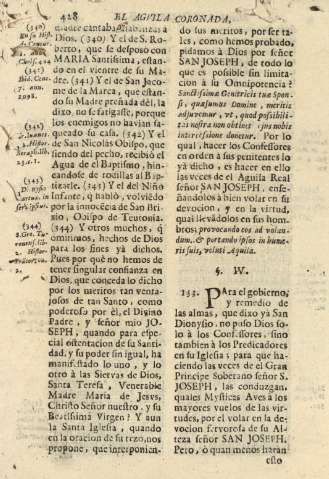 428 EL AGUILA CORONADA,
madre cantaba alabanzas à
Dios. (340) Y el de S. Ro-
berto, que se desposò con
MARIA Santissima, estan-
do en el vientre de su Ma-
dre. (341) Y el de San Jaco-
me de la Marca, que estan-
do su Madre preñada dèl, la
dixo, no se fatigasse, porque
los enemigos no havian sa-
queado su casa. (342) Y el
de San Nicolàs Obispo, que
siendo del pecho, recibiò el
Agua de el Baptismo, hin-
candose de rodillas al Bap-
tizarle. (343) Y el del Niño
Infante, q hablò, volviedo
por la innocecia de San Bri-
sio, Obispo de Teutonia.
(344) Y otros muchos, q
omitimos, hechos de Dios
para los fines yà dichos.
Pues por què no hemos de
tener singular confianza en
Dios, que conceda lo dicho
por los meritos tan venta-
josos de tan Santo, como
poderoso por èl, el Divino
Padre, y señor mio JO-
SEPH, quando para espe-
cial ostentacion de su Santi-
dad, y su poder sin igual, ha
manifestado lo uno, y lo
otro à las Siervas de Dios,
Santa Teresa, Venerable
Madre Maria de Jesvs,
Christo Señor nuestro, y su
Beatissima Virgen? Y aun
la Santa Iglesia, quando
en la oracion de su rezo, nos
propone, que interponien-
(340)
(341)
(342)
(343)
(344)
do sus meritos, por ser ta-
les, como hemos probado,
pidamos à Dios por señor
SAN JOSEPH, de todo lo
que es possible sin limita-
cion à su Omnipotencia?
Sanctissimæ Genitricis tuæ Spon-
si, quæsumus Domine, meritis
adjuvemur, vt, quod possibili-
tas nostra non obtinet, ejus nobis
intercessione donetur. Por lo
qual, hacer los Confessores
en orden à sus penitentes lo
yà dicho, es hacer en ello
las veces de el Aguila Real
señor SAN JOSEPH, ense-
ñandolos à bien volar en su
devocion, y en la virtud,
qual llevadolos en sus hom-
bros; provocando eos ad volan-
dum, & portando ipsos in hume-
ris suis, velut Aquila.
§. IV.
133. PAra el gobierno,
y remedio de
las almas, que dixo yà San
Dionysio, no puso Dios so-
lo à los Confessores, sino
tambien à los Predicadores
en su Iglesia; para que ha-
ciendo las veces de el Gran
Principe Soberano señor S.
JOSEPH, las conduzgan,
quales Mysticas Aves à los
mayores vuelos de las vir-
tudes, por el volar en la de-
vocion fervorosa de su Al-
teza señor SAN JOSEPH.
Pero, ò quan menos haran
esto